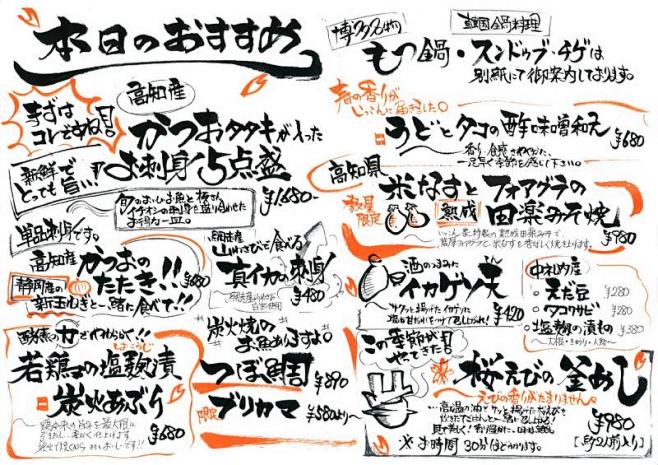 本日のおすすめ
まずは
コレですね!
高知産
かつおタタキが入った
お刺身5点盛
新鮮で
とっても旨い!!
¥1,680~
お手頃な一皿。
単品刺身です。
高知産
かつおの
たたき!!
静岡県産の
新玉ねぎと一緒に食べて!!
¥680
網走産
山わさびで食べる
真イカの刺身
¥480
若鶏ももの塩麹漬
しおこうじ
炭火あぶり
¥680
炭火焼の
お魚ありますよ。
つぼ鯛
¥890
限定
ブリカマ
¥580より~
博多名物
韓国鍋料理
もつ鍋・スンドゥブ・チゲは
別紙にて御案内しております。
春の香りが
じっこんに届きました。
うどとタコの酢味噌和え
¥680
一足早く季節を感じて下さい。
高知県
数量
限定
米なすとフォアグラの
熟成
田楽みそ焼
¥980
酒のつまみに
イカゲソ天
¥420
中札内産
・えだ豆
¥280
・タコワサビ
¥380
・塩麹の漬もの
¥380
~大根・きゅうり・人参~
この季節が
やってきた!
桜えびの釜めし
えびの香りがたまりません。
¥980
[約2人前入り]
※お時間 30分ほどかかります。